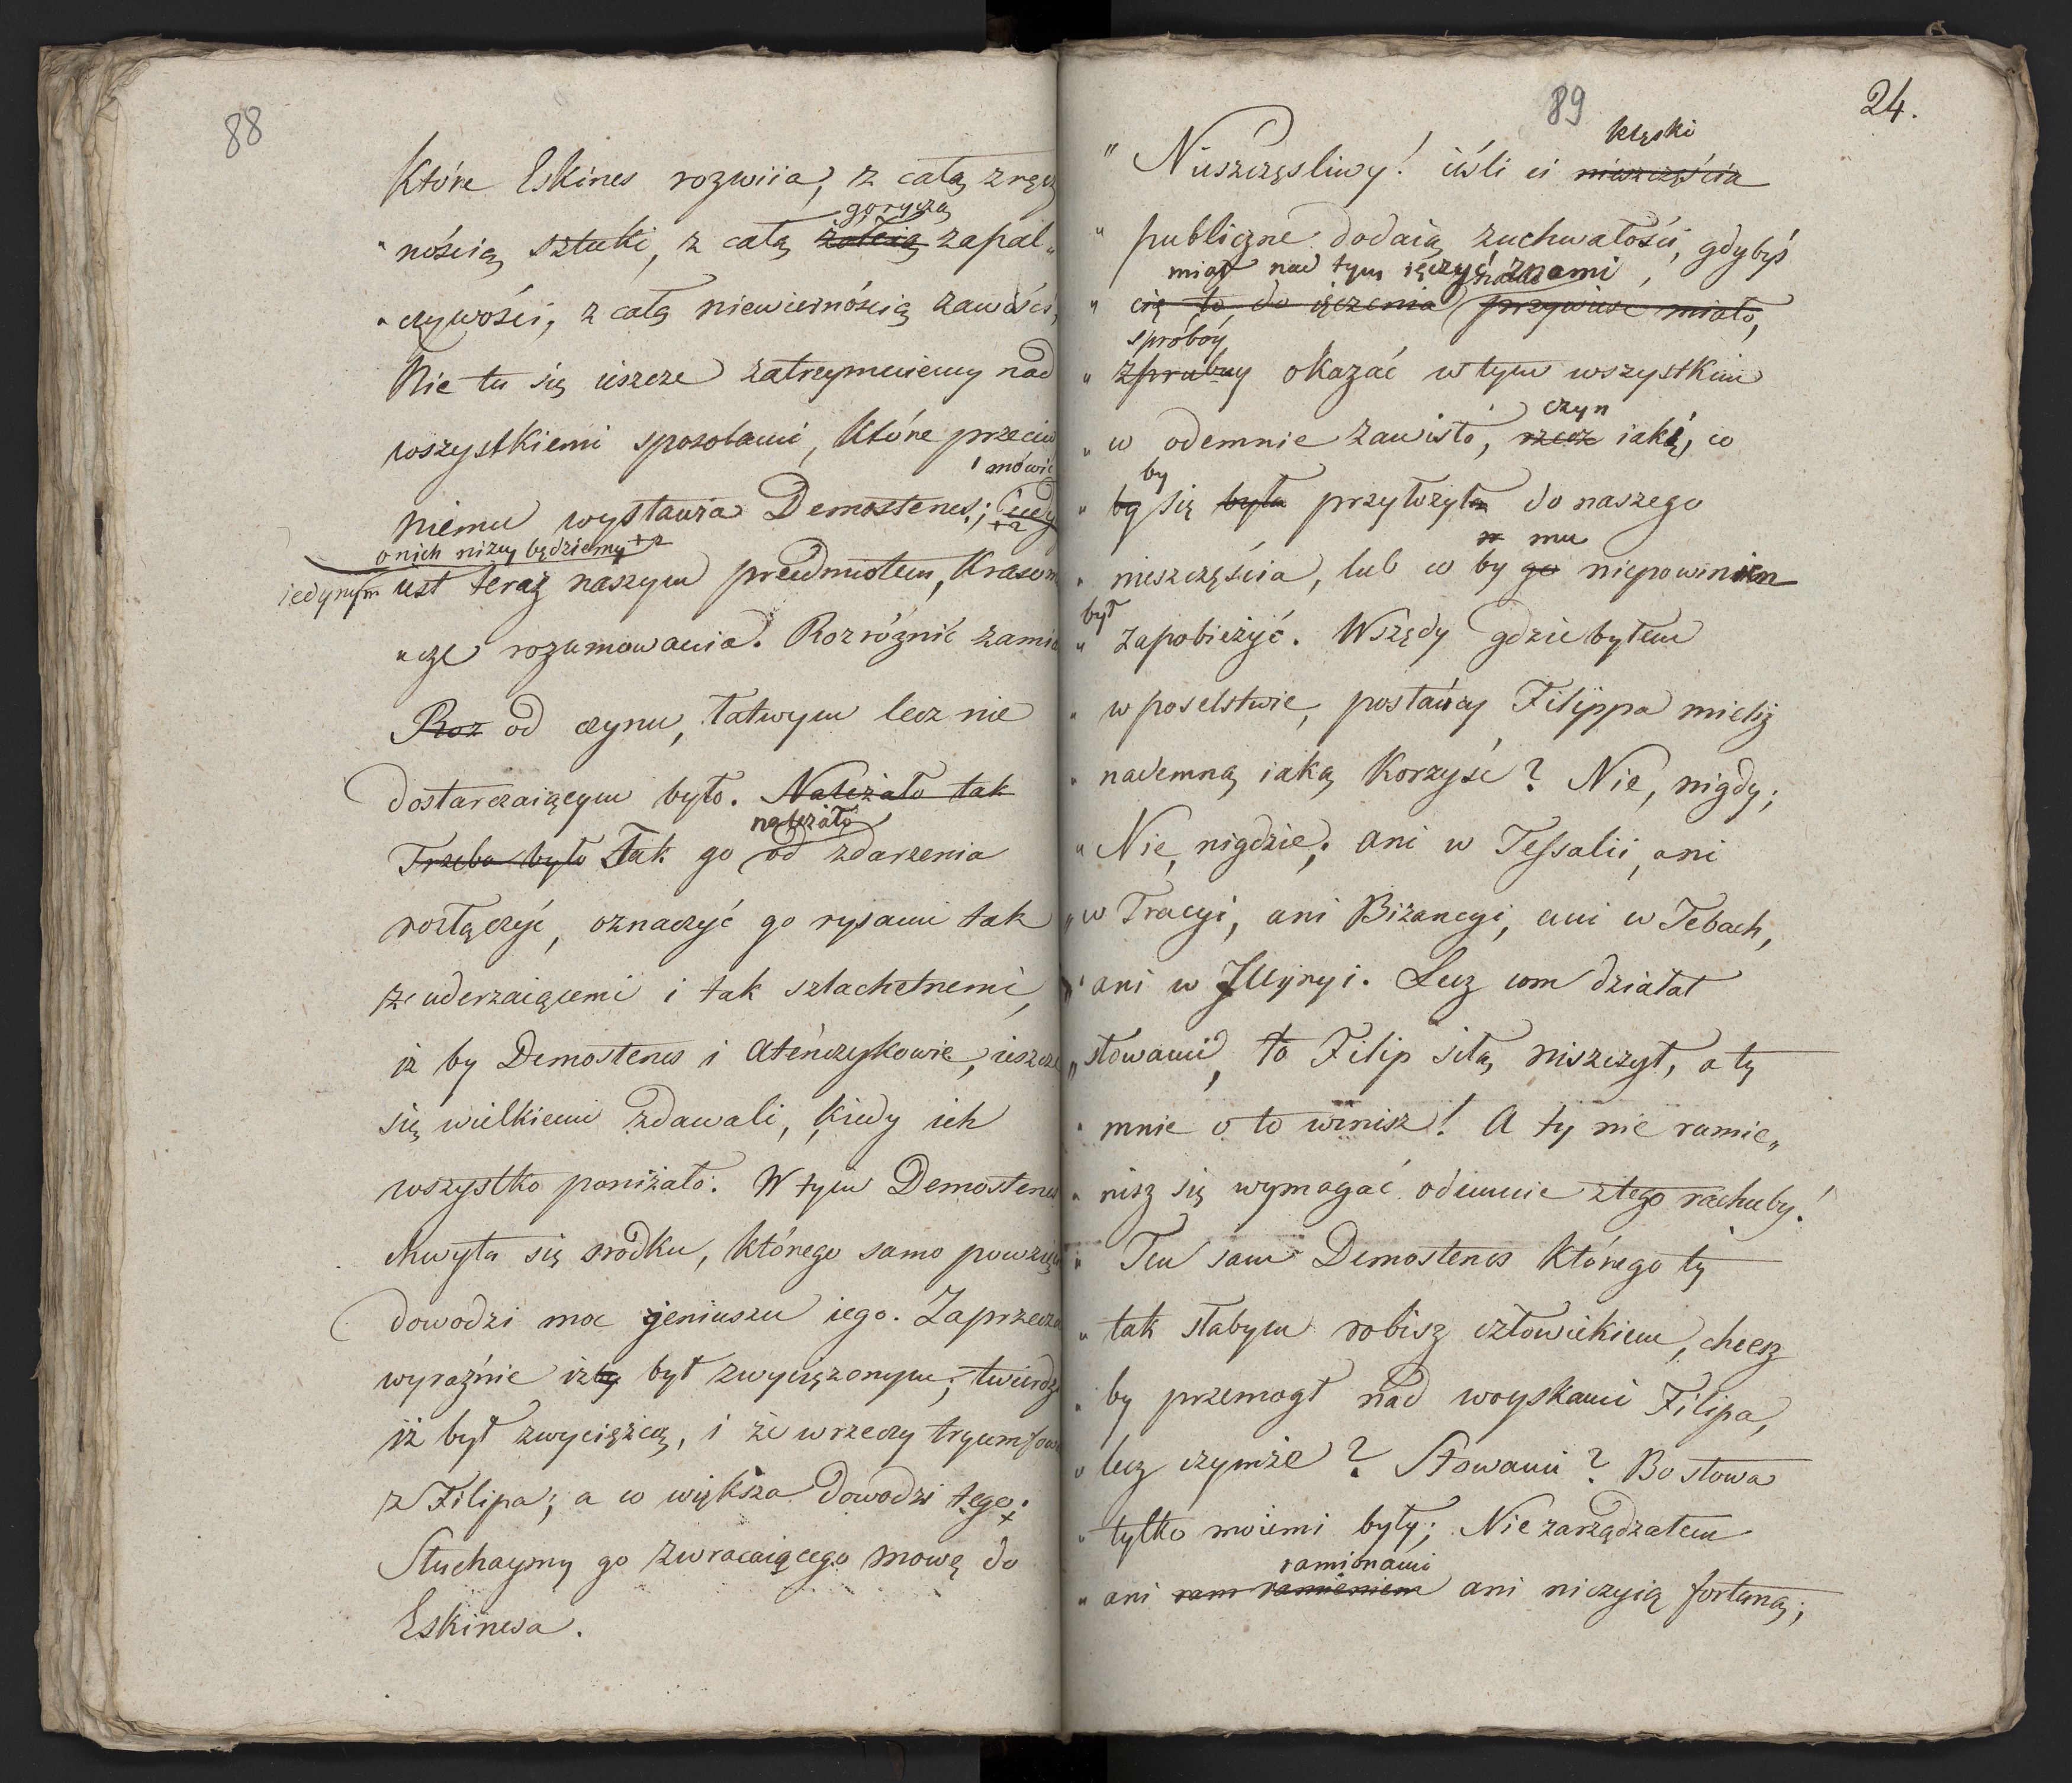 88
Które Eskines rozwiia, z całą zręcz
goryczą
„nością sztuki, z całą żółcią zapal„
„czywości, z całą niewiernością zawiści,
Nie tu się ieszcze zatrzymuiemy nad
wszystkiemi sposobami, które przeciw
mówić
niemu wystawia Demostenes;
o nich niżey będziemy
iedynym iest teraz naszym przedmiotem, krasom
„cze rozumowania. Rozróżnić zamia
Roz od czynu, łatwym lecz nie
dostarczaiącym było. Należało tak
należało
Trzeba było tak go od zdarzenia
rozłączyć, oznaczyć go rysami tak
uderzaiącemi i tak szlachetnemi,
iż by Demostenes i Ateńczykowie, ieszcze
się wielkiemi zdawali, kiedy ich
wszystko poniżało. W tym Demostenes
chwyta się srodku, którego samo powzię
dowodzi moc jeniuszu iego. Zaprzecza
wyraźnie iżby był zwyciężonym; twierdzi
iż był zwyciężcą, i że w rzeczy tryumfow
z Filipa; a co większa dowodzi tego:
Słuchaymy go zwracaiącego mowę do
Eskinesa.
89
24.
klęski
„Nieszczęsliwy! ieśli ci nieszczęścia
„publiczne dodaią zuchwałości, gdybyś
miał nad tym ięczyć znami,
„cię to do ięczenia przywieść miało,
spróbóy
„zprubuy okazać w tym wszystkim
czyn
„w odemnie zawisło, rzecz iaką, co
by
„by się była przyłożyła do naszego
mu
„nieszczęścia, lub co by go niepowinien
był
„zapobieżyć. Wszędy gdzie byłem
„w poselstwie, posłańcy Filippa mieliż
„nademną iaką korzyść? Nie, nigdy;
„Nie, nigdzie; ani w Tessalii, ani
„w Tracyi, ani Bizancyi, ani w Tebach,
„ani w Jlliryi. Lecz com działał
„słowami, to Filip siłą niszczył, a ty
„mnie o to winisz! A ty nie rumie„
„nisz się wymagać odemnie ztego rachuby!
„Ten sam Demostenes którego ty
„tak słabym robisz człowiekiem, chcesz
„by przemogł nad woyskami Filipa,
„lecz czymże? Słowami? Bo słowa
„tylko moiemi były; Nie zarządzałem
ramionami
„ani ram ramieniem ani niczyią fortuną;